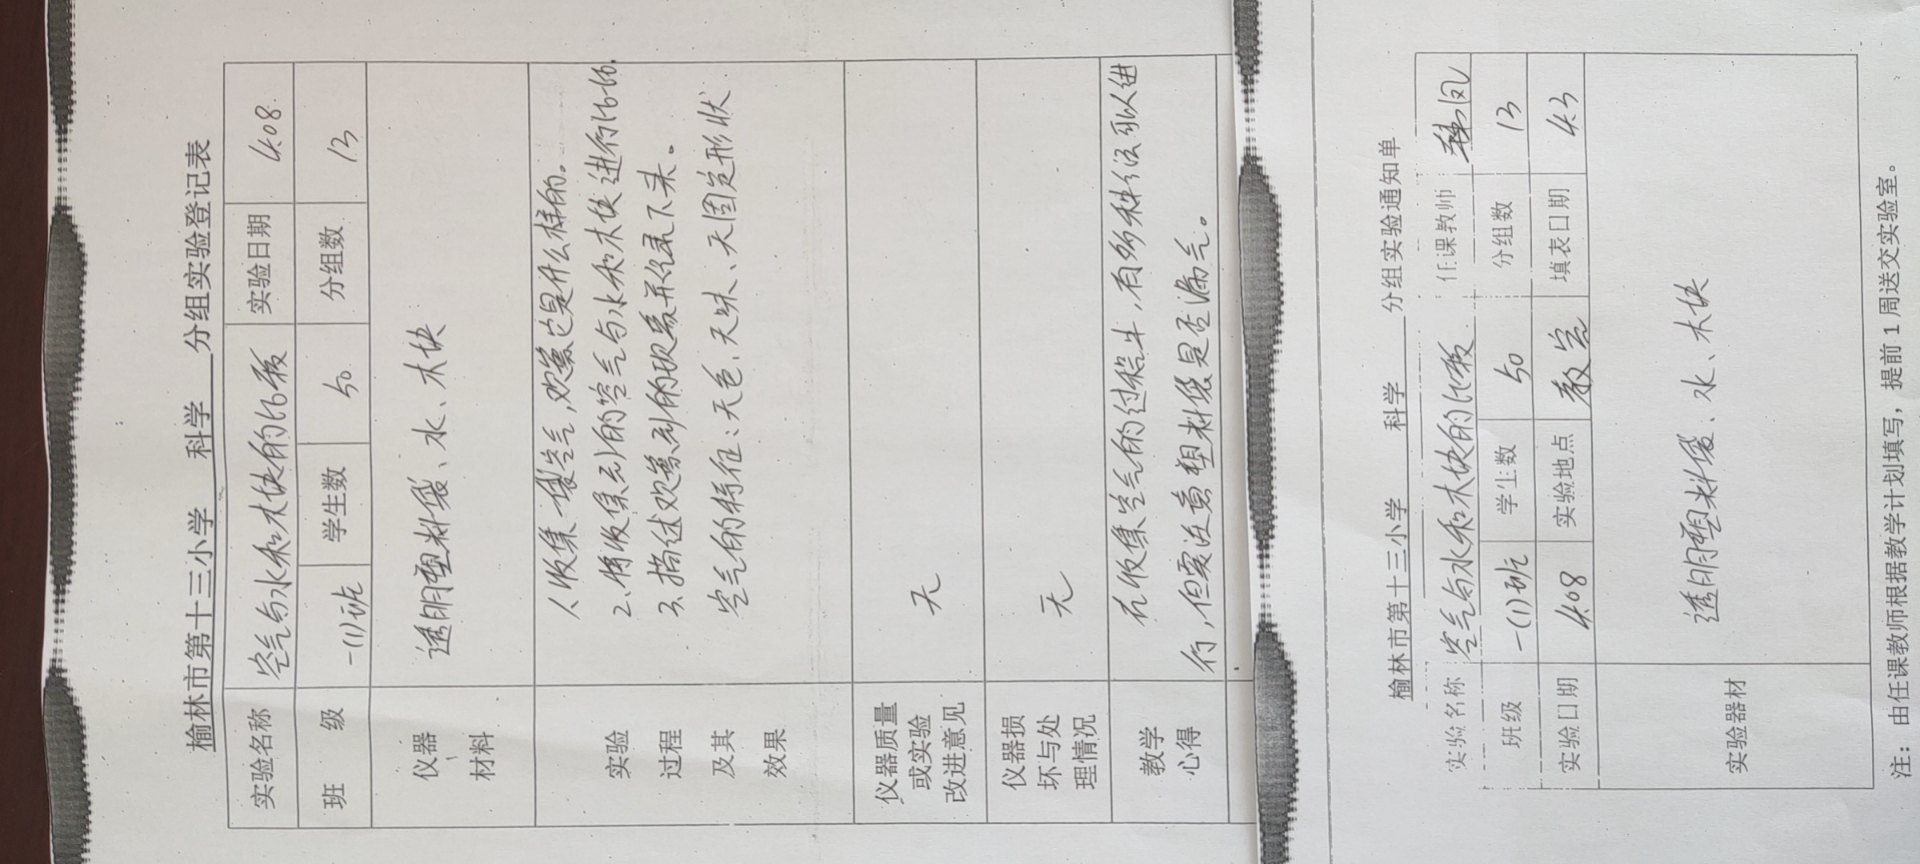 榆林市第十三小学 科学 分组实验登记表
实验名称 空气与水和木块的比较 实验日期 4.08
班 级 一(1)班 学生数 50 分组数 13
仪器 材料 透明塑料袋、水、木块
实验 过程 及其 效果
1.收集一袋空气,观察它是什么样的。
2.将收集到的空气与水和木块进行比较.
3.描述观察到的现象并记录下来。
空气的特征:无色、无味、无固定形状
仪器质量 或实验 改进意见 无
仪器损 坏与处 理情况 无
教学 心得
在收集空气的过程中,有多种方法可以进
行,但要注意塑料袋是否漏气。
榆林市第十三小学 科学 分组实验通知单
实验名称 空气与水和木块的比较 任课教师
班级 一(1)班 学生数 50 分组数 13
实验日期 4.08 实验地点 教室 填表日期 4.3
实验器材 透明塑料袋、水、木块
注：由任课教师根据教学计划填写，提前1周送交实验室。